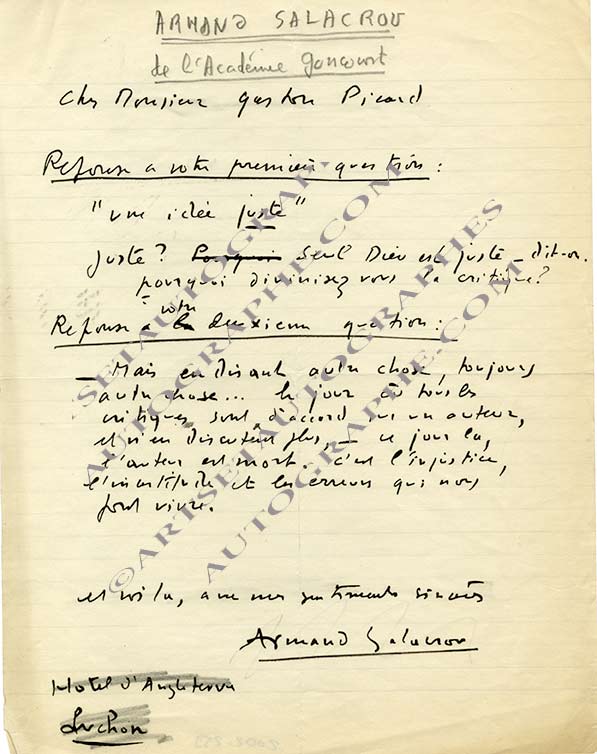 ARMAND SALACROU
de l'Académie Goncourt
Cher Monsieur Gaston Picard
Réponse à votre première question :
"une idée juste"
Juste ? Pourquoi Seul Dieu est juste – dit-on.
pourquoi divinisez vous la critique ?
votre
Réponse à la deuxième question :
– Mais en disant autre chose, toujours
autre chose... le jour où tous les
critiques sont d'accord sur un auteur,
et n'en discutent plus, – ce jour là,
l'auteur est mort. C'est l'injustice,
l'incertitude et les erreurs qui nous
font vivre.
et voilà, avec mes sentiments sincères
Armand Salacrou
Hotel d'Angleterre
Luchon
SETAUTOGRAPHES
AUTOGRAPHE.COM
©ARTSETAUTOGRAPHES
AUTOGRAPHE.COM